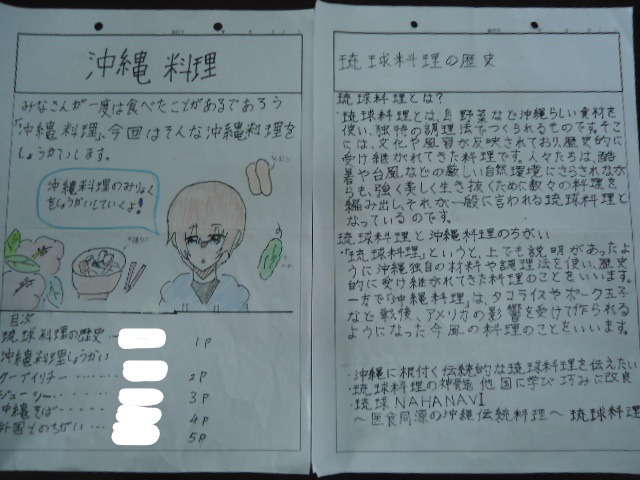 沖縄料理
みなさんが一度は食べたことがあるであろう
「沖縄料理」、今回はそんな沖縄料理を
しょうかいします。
沖縄料理のみりょく
をしょうかいしていくよ!
目次
琉球料理の歴史 1P
沖縄料理しょうかい
クーブイリチー 2P
ジューシー 3P
沖縄そば 4P
外国とのちがい 5P
琉球料理の歴史
琉球料理とは?
琉球料理とは、島野菜など沖縄らしい食材を
使い、独特の調理法でつくられるものです。そこ
には、文化や風習が反映されており、歴史的に
受け継がれてきた料理です。人々たちは、酷
暑や台風などの厳しい自然環境にさらされなが
らも、強く楽しく生き抜くために数々の料理を
編み出し、それが一般に言われる琉球料理と
なっているのです。
琉球料理と沖縄料理のちがい
「琉球料理」というと、上でも説明があったよ
うに沖縄独自の材料や調理法を使い、歴史
的に受け継がれてきた料理のことをいいます。
一方で「沖縄料理」は、タコライスやポーク玉子
など戦後、アメリカの影響を受けて作られる
ようになった今風の料理のことをいいます。
・沖縄に根付く伝統的な琉球料理を伝えたい
・琉球料理の神髄 他国に学び巧みに改良
・琉球NAHANAVI
〜医食同源の沖縄伝統料理〜 琉球料理